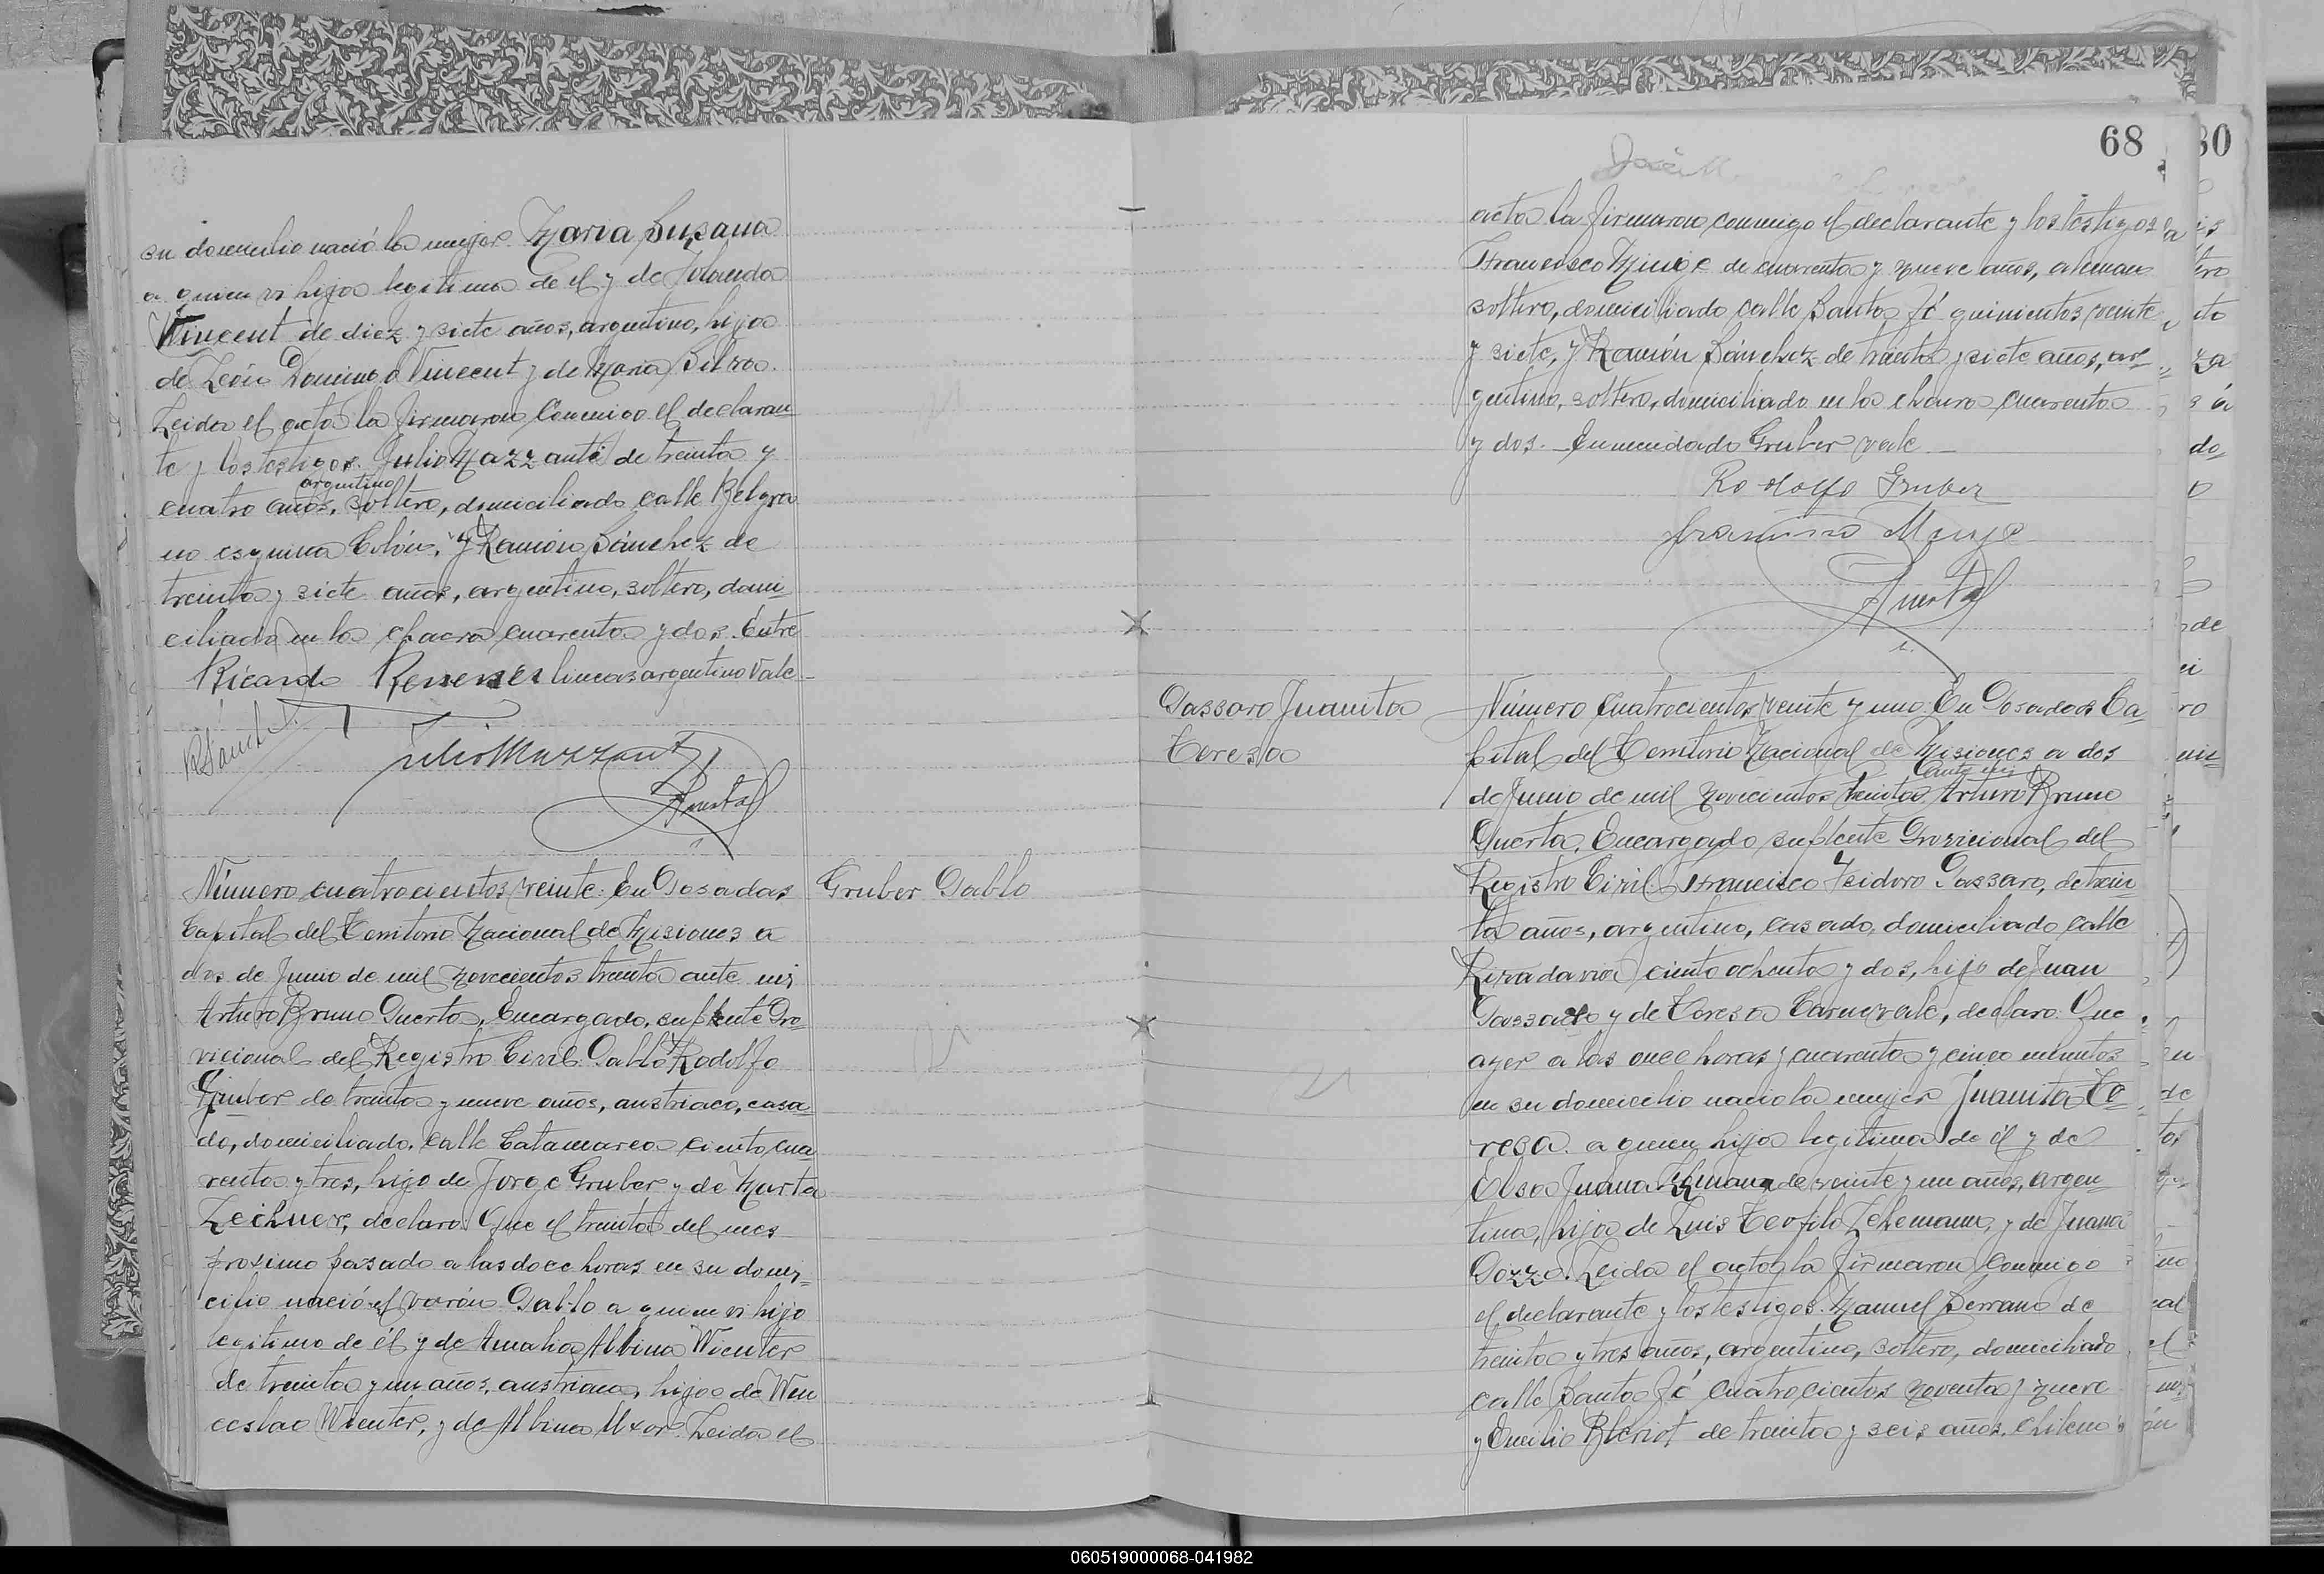 su domicilio nació la mujer Maria Susana
a quien vi hija legitima de el y de Iolanda
Vincent de diez y siete años, argentina, hija
de León Domingo Vincent y de Maria Silva.
Leida el acta la firmaron conmigo el declaran
te y los testigos. Julio Mazzanti de treinta y
argentino
cuatro años, soltero, domiciliado calle Belgra
no esquina Colón, y Ramón Sánchez de
treinta y siete años, argentino, soltero, domi
ciliado en la chacra cuarenta y dos. Entre
Ricardo lineas argentino vale
R Sánchez
Julio Mazzanti
Puerta
Número cuatrocientos veinte: En Posadas
Gruber Pablo
Capital del Territorio Nacional de Misiones a
dos de Junio de mil novecientos treinta ante mi
Arturo Bruno Puerta, Encargado suplente Pro
vicional del Registro Civil: Pablo Rodolfo
Gruber de treinta y nueve años, austriaco, casa
do, domiciliado calle Catamarca ciento cua
renta y tres, hijo de Jorge Gruber y de Marta
Zechner, declaro: Que el treinta del mes
proximo pasado a las doce horas en su domi-
cilio nació el varón Pablo a quien vi hijo
legitimo de él y de Amalia Albina Wienter
de treinta y un años, austriaca, hija de Wen
ceslao Wienter, y de Albina Uxor. Leida el
68
José M
acta la firmaron conmigo el declarante y los testigos
Francisco Minge de cuarenta y nueve años, aleman
soltero, domiciliado calle Santa Fé quinientos veinte
y siete, y Ramón Sánchez de treinta y siete años, ar-
gentino, soltero, domiciliado en la chacra cuarenta
y dos.- Enmendado Gruber vale
Rodolfo Gruber
Puerta
Passaro Juanita
Teresa
Número cuatrocientos veinte y uno: En Posadas Ca
pital del Territorio Nacional de Misiones a dos
ante mi
de Junio de mil novecientos treinta Arturo Bruno
Puerta, Encargado suplente Provicional del
Registro Civil: Francisco Isidoro Passaro, de trein
ta años, argentino, casado, domiciliado calle
Rivadavia ciento ochenta y dos, hijo de Juan
Passaro y de Teresa Carnevale, declaro: Que
ayer a las once horas y cuarenta y cinco minutos
en su domicilio nacio la mujer Juanita Te
resa a quien hija legitima de él y de
Elsa Juana de veinte y un años, argen
tina, hija de Luis Teofilo Lehemann, y de Juana
Pozzo. Leida el acta la firmaron conmigo
el declarante y los testigos. Manuel Serrano de
treinta y tres años, argentino, soltero, domiciliado
calle Santa Fé cuatrocientos noventa y nueve
y Emilio Bleriot de treinta y seis años, chileno
060519000068-041982